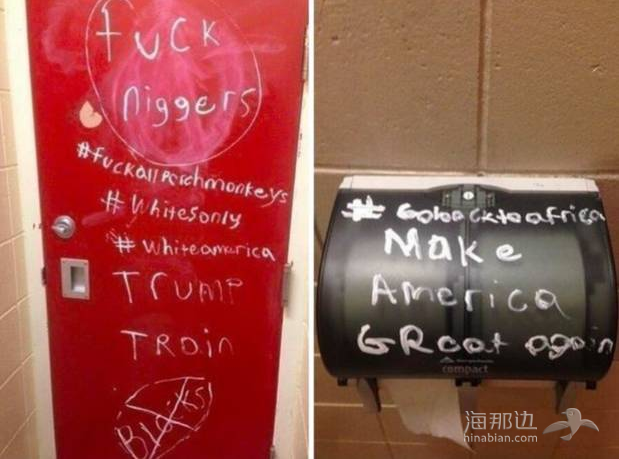 fuck
niggers
#fuckallporchmonkeys
#Whitesonly
#whiteamerica
TRUMP
TRain
Blacks!
#Gobacktoafrica
Make
America
GReat again
compact
海那边
hinabian.com